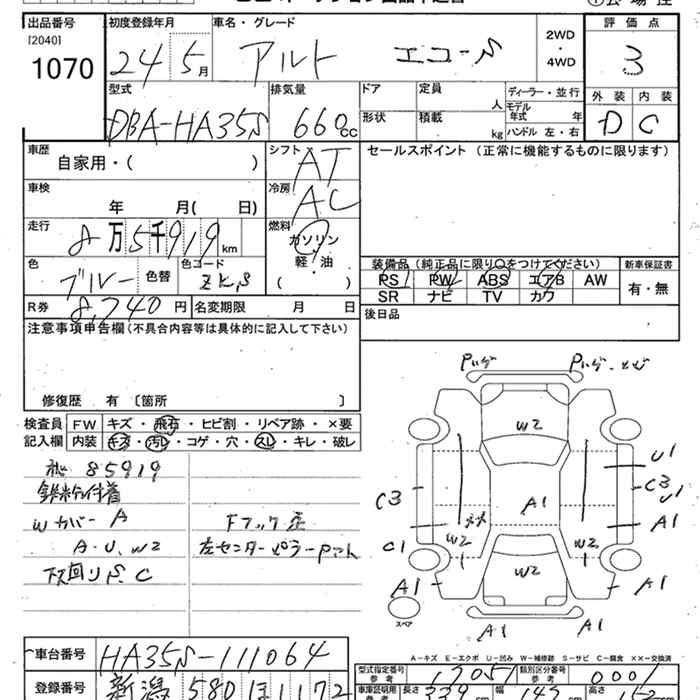 出品番号 初度登録年月 車名・グレード 2WD・4WD 評価点
[2040]
1070 24 5月 アルト エコ-S 3
型式 排気量 ドア 定員 人 ディーラー・並行 外装 内装
DBA-HA35S 660cc 形状 積載 kg モデル年式 年 ハンドル 左・右 D C
車歴 シフト AT セールスポイント(正常に機能するものに限ります)
自家用・( )
車検 冷房 AC
年 月( 日)
走行 8万5千919km 燃料 ガソリン 軽・油 ( )
色 ブルー 色替 色コード ZKS
装備品(純正品に限り○をつけてください) 新車保証書
PS PW ABS エアB AW 有・無
SR ナビ TV カワ
R券 8,740円 名変期限 月 日 後日品
注意事項申告欄(不具合内容等は具体的に記入して下さい)
修復歴 有 〔箇所 〕
検査員記入欄 FW キズ・飛石・ヒビ割・リペア跡・×要
内装 キズ・汚レ・コゲ・穴・スレ・キレ・破レ
85919
Wカバー A Fフック歪
A・U、W2 左センターピラーPマト
下回りS、C
W2
U1
C3 C3
U1
A1 A1
W2 W2
C1
W2
A1 A1
スペア
A1 A1
車台番号 HA35S-111064
A-キズ E-エクボ U-凹み W-補修跡 S-サビ C-腐食 ××-交換済
型式指定番号 参考 17051 類別区分番号 参考 0001
登録番号 新潟 580 ほ 1172
車庫証明用 参考 長さ 339 幅 147 高さ